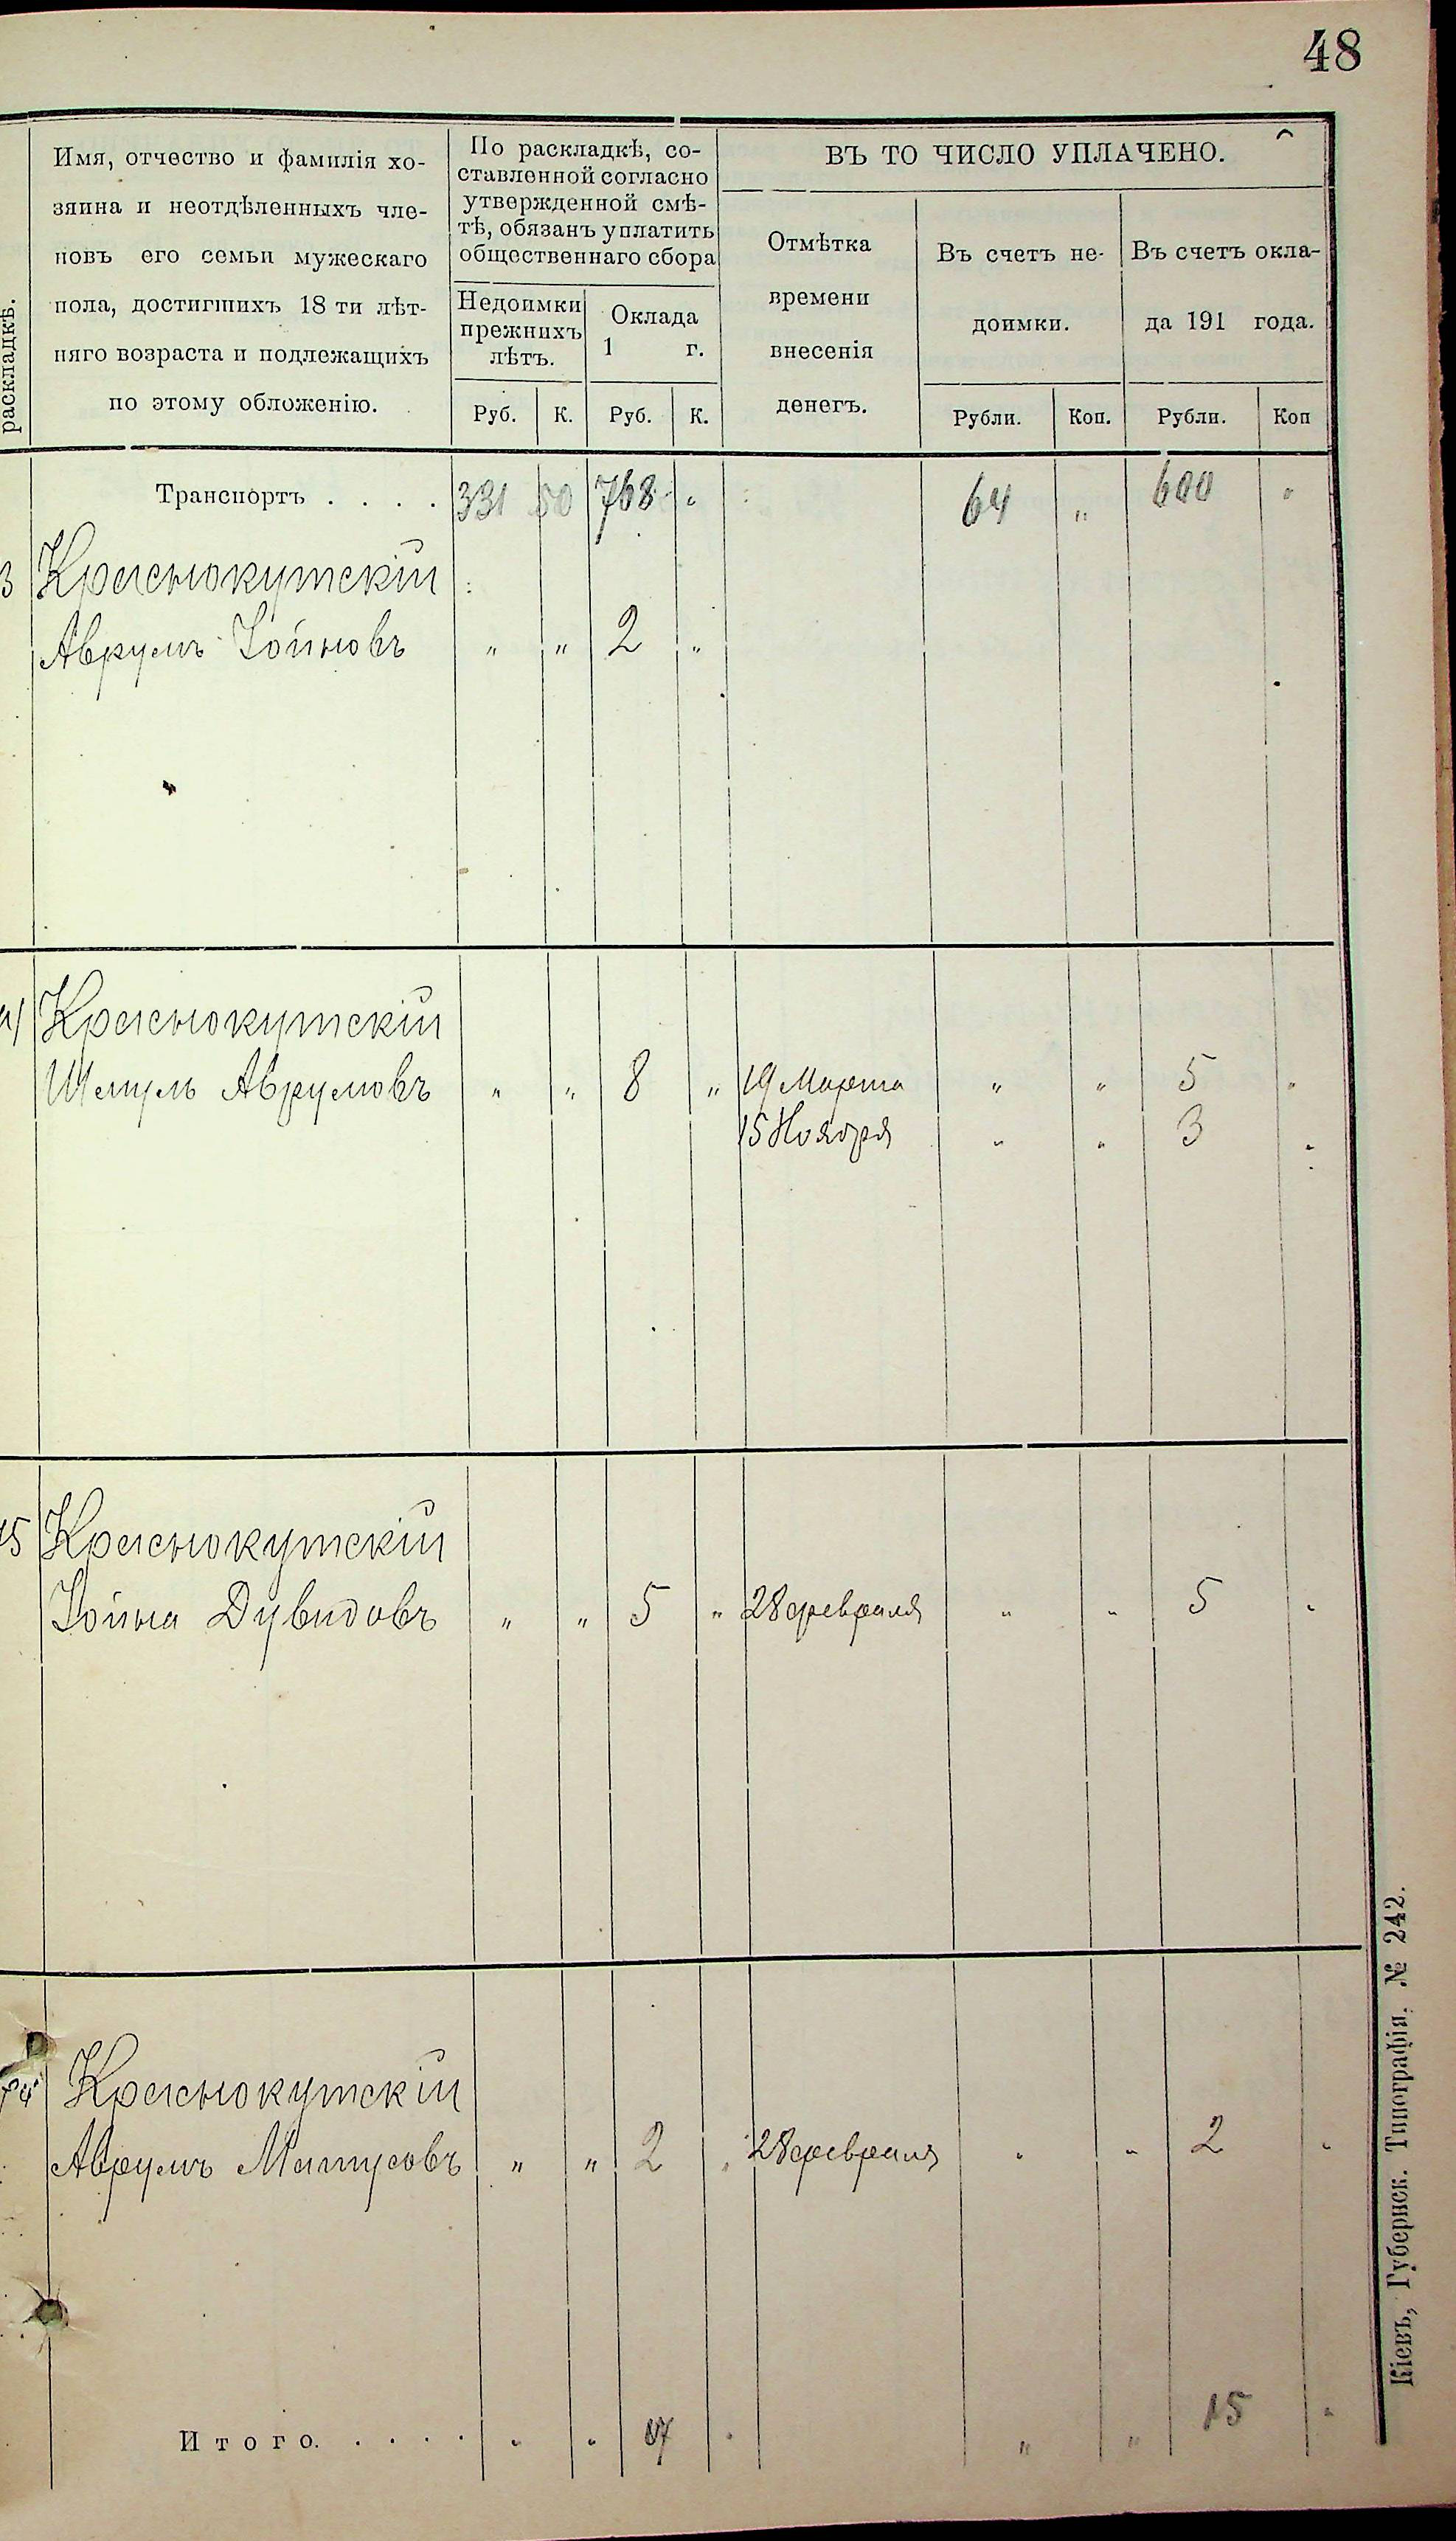 48
раскладкѣ.
Имя, отчество и фамилія хо-
зяина и неотдѣленныхъ чле-
новъ его семьи мужескаго
пола, достигшихъ 18 ти лѣт-
няго возраста и подлежащихъ
по этому обложенію.
По раскладкѣ, со-
ставленной согласно
утвержденной смѣ-
тѣ, обязанъ уплатить
общественнаго сбора
Недоимки
прежнихъ
лѣтъ.
Оклада
1 г.
Руб. К. Руб. К.
ВЪ ТО ЧИСЛО УПЛАЧЕНО.
Отмѣтка
времени
внесенія
денегъ.
Въ счетъ не-
доимки.
Въ счетъ окла-
да 191 года.
Рубли. Коп. Рубли. Коп
Транспортъ . . . . 331 50 768 " 64 " 600 "
3 Краснокутскій
Аврумъ Іойновъ " " 2 "
Краснокутскій
Шмуль Аврумовъ " " 8 " 19 Марта " " 5 "
15 Ноября " " 3 "
15 Краснокутскій
Іойна Дувидовъ " " 5 " 28 февраля " " 5 "
Краснокутскій
Аврумъ Матусовъ " " 2 " 28 февраля " " 2 "
Итого. . . . . " " 17 " " " 15 "
Кіевъ, Губернск. Типографія. № 242.